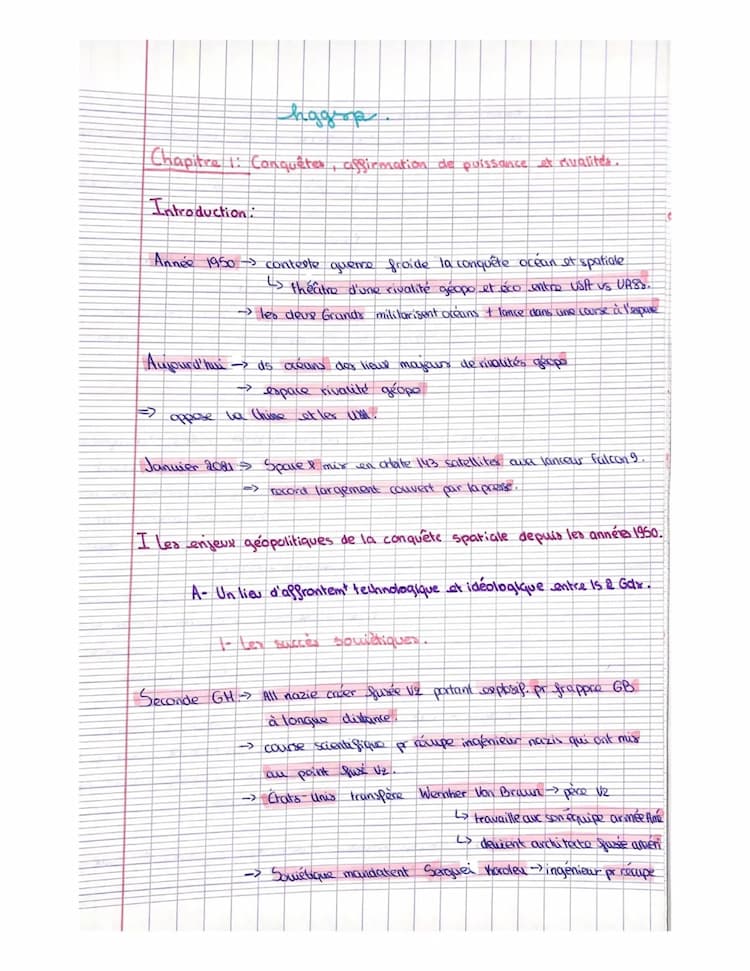 hggsp.
Chapitre 1: Conquêtes, affirmation de puissance et rivalités.
Introduction:
Année 1950 → contexte guerre froide la conquête océan et spatiale
↳ théâtre d'une rivalité géopo et éco entre USA vs URSS.
→ les deux Grands militarisent océans + lance dans une course à l'espace
Aujourd'hui → ds océans des lieux majeurs de rivalités géopo
→ espace rivalité géopo
⇒ oppose la Chine et les USA.
Janvier 2021 → Space X mix en orbite 143 satellites aux lanceur Falcon 9.
→ record largement couvert par la presse.
I Les enjeux géopolitiques de la conquête spatiale depuis les années 1950.
A- Un lieu d'affrontemt technologique et idéologique entre ls 2 Gdx.
1- Les succès soviétiques.
Seconde GM → All nazie créer fusée V2 portant explosif. pr frappre GB
à longue distance.
→ course scientifique pr récupe ingénieur nazis qui ont mis
au point fusé V2.
→ États-Unis transfère Wernher Von Braun → père V2
↳ travaille aux son équipe armée Amé
↳ devient architecte fusée améri
→ Soviétique mandatent Serguei Korolev → ingénieur pr récupe